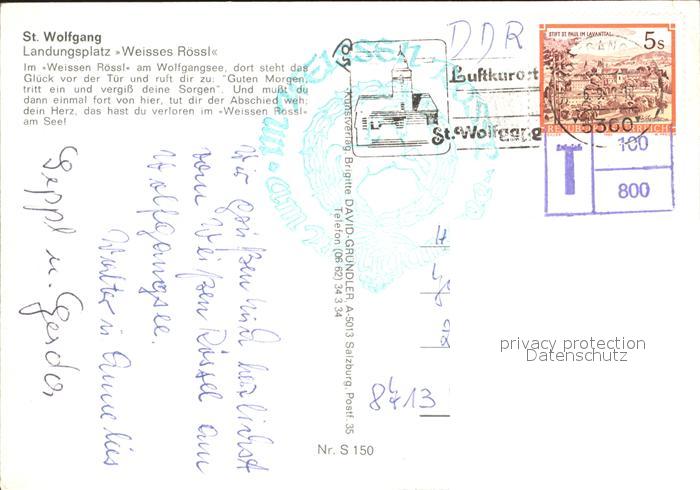 St. Wolfgang
Landungsplatz »Weisses Rössl«
Im »Weissen Rössl« am Wolfgangsee, dort steht das
Glück vor der Tür und ruft dir zu: "Guten Morgen,
tritt ein und vergiß deine Sorgen". Und mußt du
dann einmal fort von hier, tut dir der Abschied weh:
dein Herz, das hast du verloren im »Weissen Rössl«
am See!
Wir grüßen Euch herzlichst
vom Weißen Rössel am
Wolfgangsee.
Walter u. Annelies
Seppl u. Gerda
Kunstverlag Brigitte DAVID-GRÜNDLER, A-5013 Salzburg, Postf. 35
Telefon (06 62) 34 3 34
Nr. S 150
DDR
Luftkurort
St. Wolfgang
STIFT ST. PAUL IM LAVANTTAL
5s
REPUBLIK ÖSTERREICH
5360
T
100
800
8713
privacy protection
Datenschutz